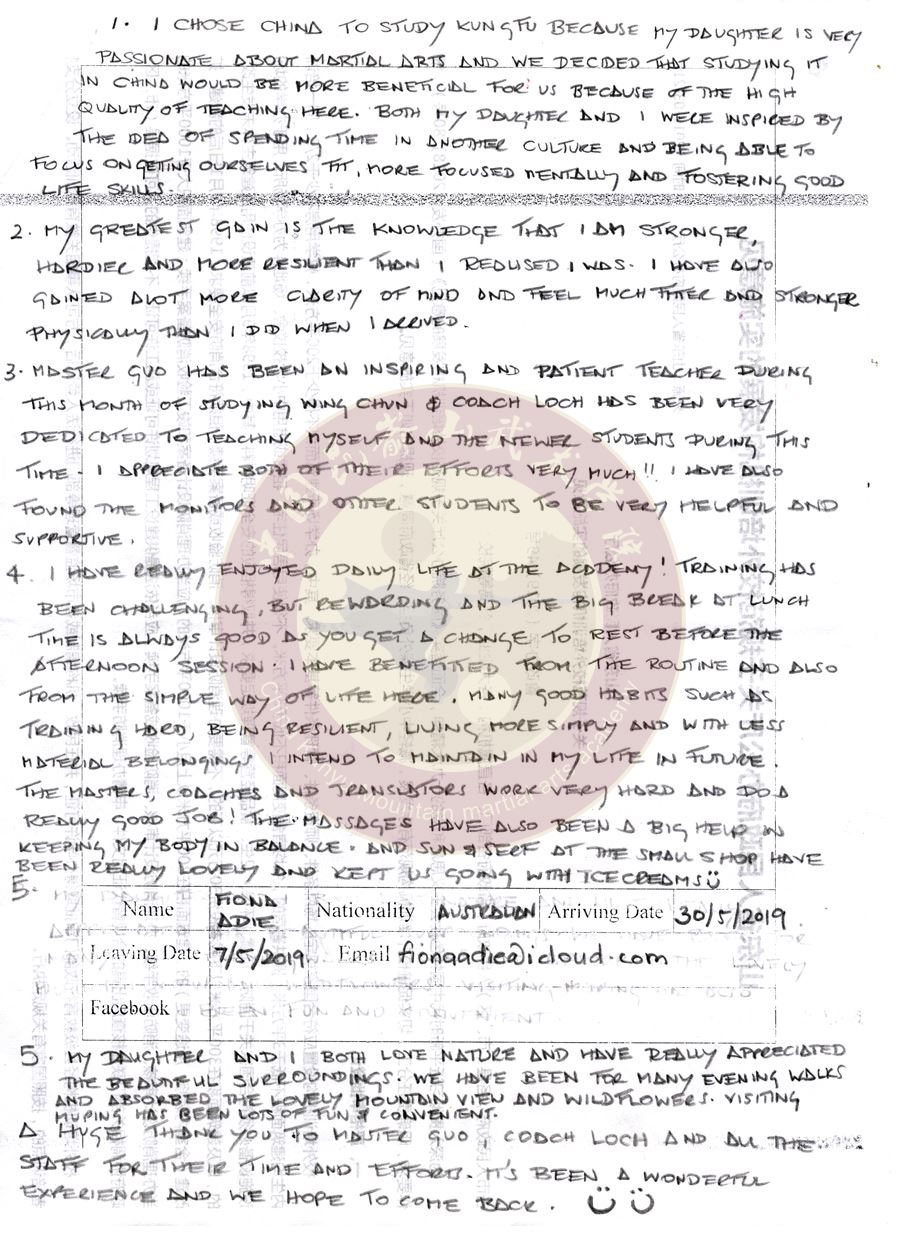 1. I CHOSE CHINA TO STUDY KUNGFU BECAUSE MY DAUGHTER IS VERY
PASSIONATE ABOUT MARTIAL ARTS AND WE DECIDED THAT STUDYING IT
IN CHINA WOULD BE MORE BENEFICIAL FOR US BECAUSE OF THE HIGH
QUALITY OF TEACHING HERE. BOTH MY DAUGHTER AND I WERE INSPIRED BY
THE IDEA OF SPENDING TIME IN ANOTHER CULTURE AND BEING ABLE TO
FOCUS ON GETING OURSELVES FIT, MORE FOCUSED MENTALLY AND FOSTERING GOOD
LIFE SKILLS.
2. MY GREATEST GAIN IS THE KNOWLEDGE THAT I AM STRONGER,
HARDIER AND MORE RESILIENT THAN I REALISED I WAS. I HAVE ALSO
GAINED ALOT MORE CLARITY OF MIND AND FEEL MUCH FITTER AND STRONGER
PHYSICALLY THAN I DID WHEN I ARRIVED.
3. MASTER GUO HAS BEEN AN INSPIRING AND PATIENT TEACHER DURING
THIS MONTH OF STUDYING WING CHUN & COACH LOCH HAS BEEN VERY
DEDICATED TO TEACHING MYSELF AND THE NEWER STUDENTS DURING THIS
TIME. I APPRECIATE BOTH OF THEIR EFFORTS VERY MUCH!! I HAVE ALSO
FOUND THE MONITORS AND OTHER STUDENTS TO BE VERY HELPFUL AND
SUPPORTIVE.
4. I HAVE REALLY ENJOYED DAILY LIFE AT THE ACADEMY! TRAINING HAS
BEEN CHALLENGING, BUT REWARDING AND THE BIG BREAK AT LUNCH
TIME IS ALWAYS GOOD AS YOU GET A CHANGE TO REST BEFORE THE
AFTERNOON SESSION. I HAVE BENEFITTED FROM THE ROUTINE AND ALSO
FROM THE SIMPLE WAY OF LIFE HERE. MANY GOOD HABITS SUCH AS
TRAINING HARD, BEING RESILIENT, LIVING MORE SIMPLY AND WITH LESS
MATERIAL BELONGINGS I INTEND TO MAINTAIN IN MY LIFE IN FUTURE.
THE MASTERS, COACHES AND TRANSLATORS WORK VERY HARD AND DO A
REALLY GOOD JOB! THE MASSAGES HAVE ALSO BEEN A BIG HELP IN
KEEPING MY BODY IN BALANCE. AND SUN & SERF AT THE SMALL SHOP HAVE
BEEN REALLY LOVELY AND KEPT US GOING WITH ICECREAMS
5.
Name FIONA ADIE Nationality AUSTRALIAN Arriving Date 30/5/2019
Leaving Date 7/5/2019 Email fionaadie@icloud.com
Facebook
5. MY DAUGHTER AND I BOTH LOVE NATURE AND HAVE REALLY APPRECIATED
THE BEAUTIFUL SURROUNDINGS. WE HAVE BEEN FOR MANY EVENING WALKS
AND ABSORBED THE LOVELY MOUNTAIN VIEW AND WILDFLOWERS. VISITING
MUPING HAS BEEN LOTS OF FUN & CONVENIENT.
A HUGE THANK YOU TO MASTER GUO, COACH LOCH AND ALL THE
STAFF FOR THEIR TIME AND EFFORTS. IT'S BEEN A WONDERFUL
EXPERIENCE AND WE HOPE TO COME BACK.